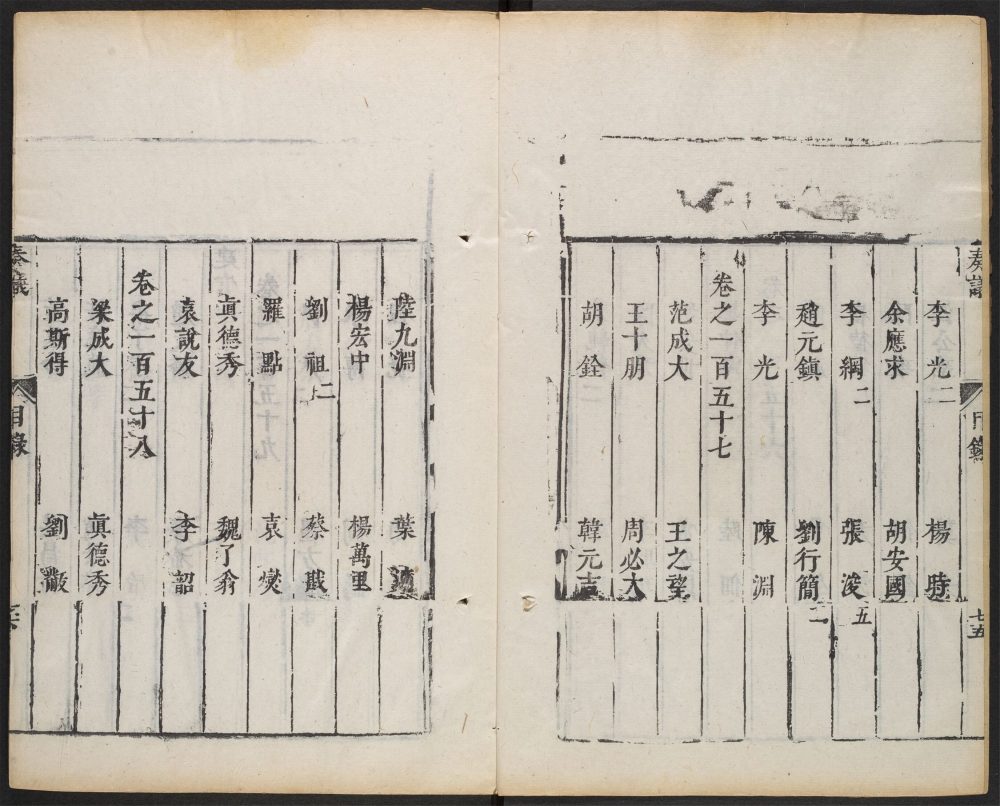 奏議
目錄
七五
李光二 楊時
余應求 胡安國
李綱二 張浚五
趙元鎮 劉行簡二
李光 陳淵
卷之一百五十七
范成大 王之望
王十朋 周必大
胡銓二 韓元吉
陸九淵 葉適
楊宏中 楊萬里
劉祖二 蔡戡
羅點 袁燮
眞德秀 魏了翁
袁說友 李韶
卷之一百五十八
梁成大 眞德秀
高斯得 劉黻
奏議
目錄